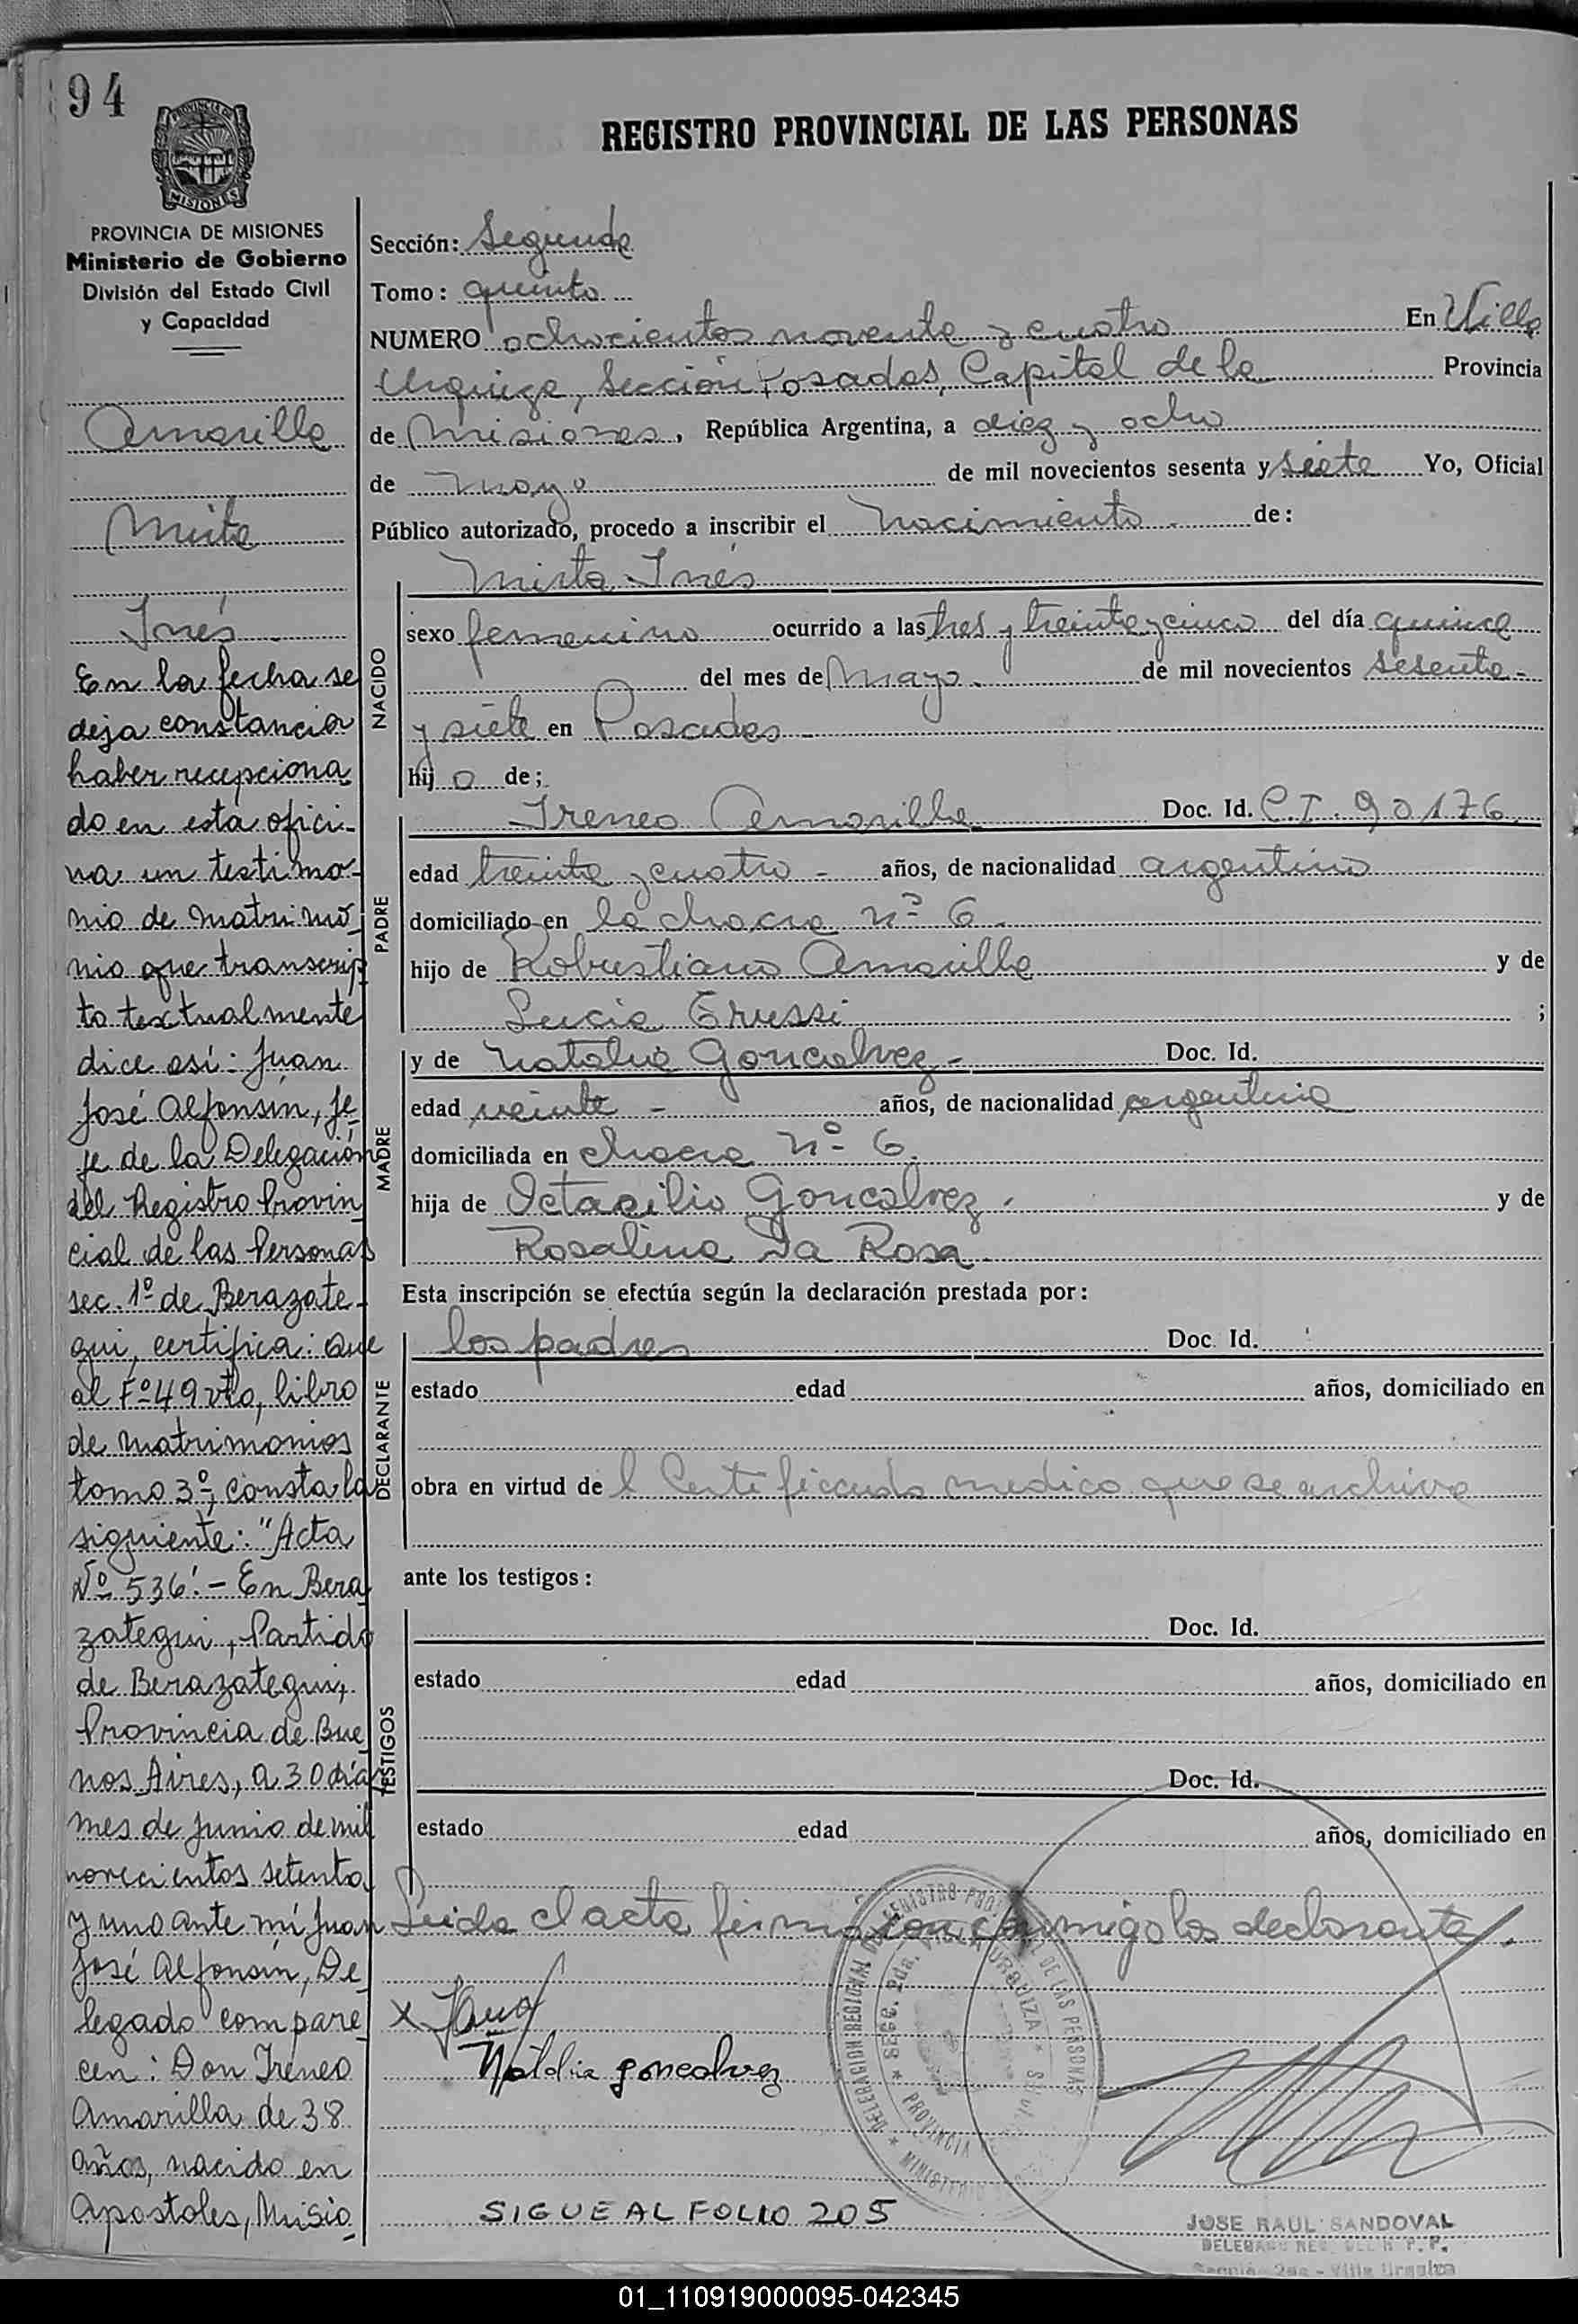 94
PROVINCIA DE
MISIONES
PROVINCIA DE MISIONES
Ministerio de Gobierno
División del Estado Civil
y Capacidad
Amarilla
Mirta
Inés
En la fecha se
deja constancia
haber recepciona
do en esta ofici-
na un testimo-
nio de matrimo
nio que transcrip
to textualmente
dice así: Juan
José Alfonsín, Je
fe de la Delegación
del Registro Provin
cial de las Personas
sec. 1º de Berazate-
gui, certifica: que
al Fº 49 vto, libro
de matrimonios
tomo 3º, consta la
siguiente: "Acta
Nº 536".- En Bera
zategui, Partido
de Berazategui,
Provincia de Bue
nos Aires, a 30 días
mes de Junio de mil
novecientos setenta
y uno ante mí Juan
José Alfonsín, De
legado compare
cen: Don Ireneo
Amarilla de 38
años, nacido en
Apostoles, Misio-
REGISTRO PROVINCIAL DE LAS PERSONAS
Sección: Segunda
Tomo: quinto
NUMERO ochocientos noventa y cuatro En Villa
Urquiza, Sección Posadas, Capital de la Provincia
de Misiones, República Argentina, a diez y ocho
de mayo de mil novecientos sesenta y siete Yo, Oficial
Público autorizado, procedo a inscribir el Nacimiento de:
Mirta Inés
NACIDO
sexo femenino ocurrido a las tres y treinta y cinco del día quince
del mes de Mayo de mil novecientos sesenta-
y siete en Posadas
hij a de;
PADRE
Ireneo Amarilla Doc. Id. C.I. 90176
edad treinta y cuatro - años, de nacionalidad argentino
domiciliado en la chacra nº 6
hijo de Robustiano Amarilla y de
Lucia Erussi ;
MADRE
y de Natalia Goncalvez - Doc. Id.
edad veinte - años, de nacionalidad argentina
domiciliada en chacra nº 6.
hija de Octacilio Goncalvez y de
Rosalina Da Rosa
Esta inscripción se efectúa según la declaración prestada por:
DECLARANTE
los padres Doc. Id.
estado edad años, domiciliado en
obra en virtud de l Certificado medico que se archiva
ante los testigos:
TESTIGOS
Doc. Id.
estado edad años, domiciliado en
Doc. Id.
estado edad años, domiciliado en
Leida el acta firman conmigo los declarantes.
x
Natalia goncalvez
SIGUE AL FOLIO 205
JOSE RAUL SANDOVAL
01_110919000095-042345